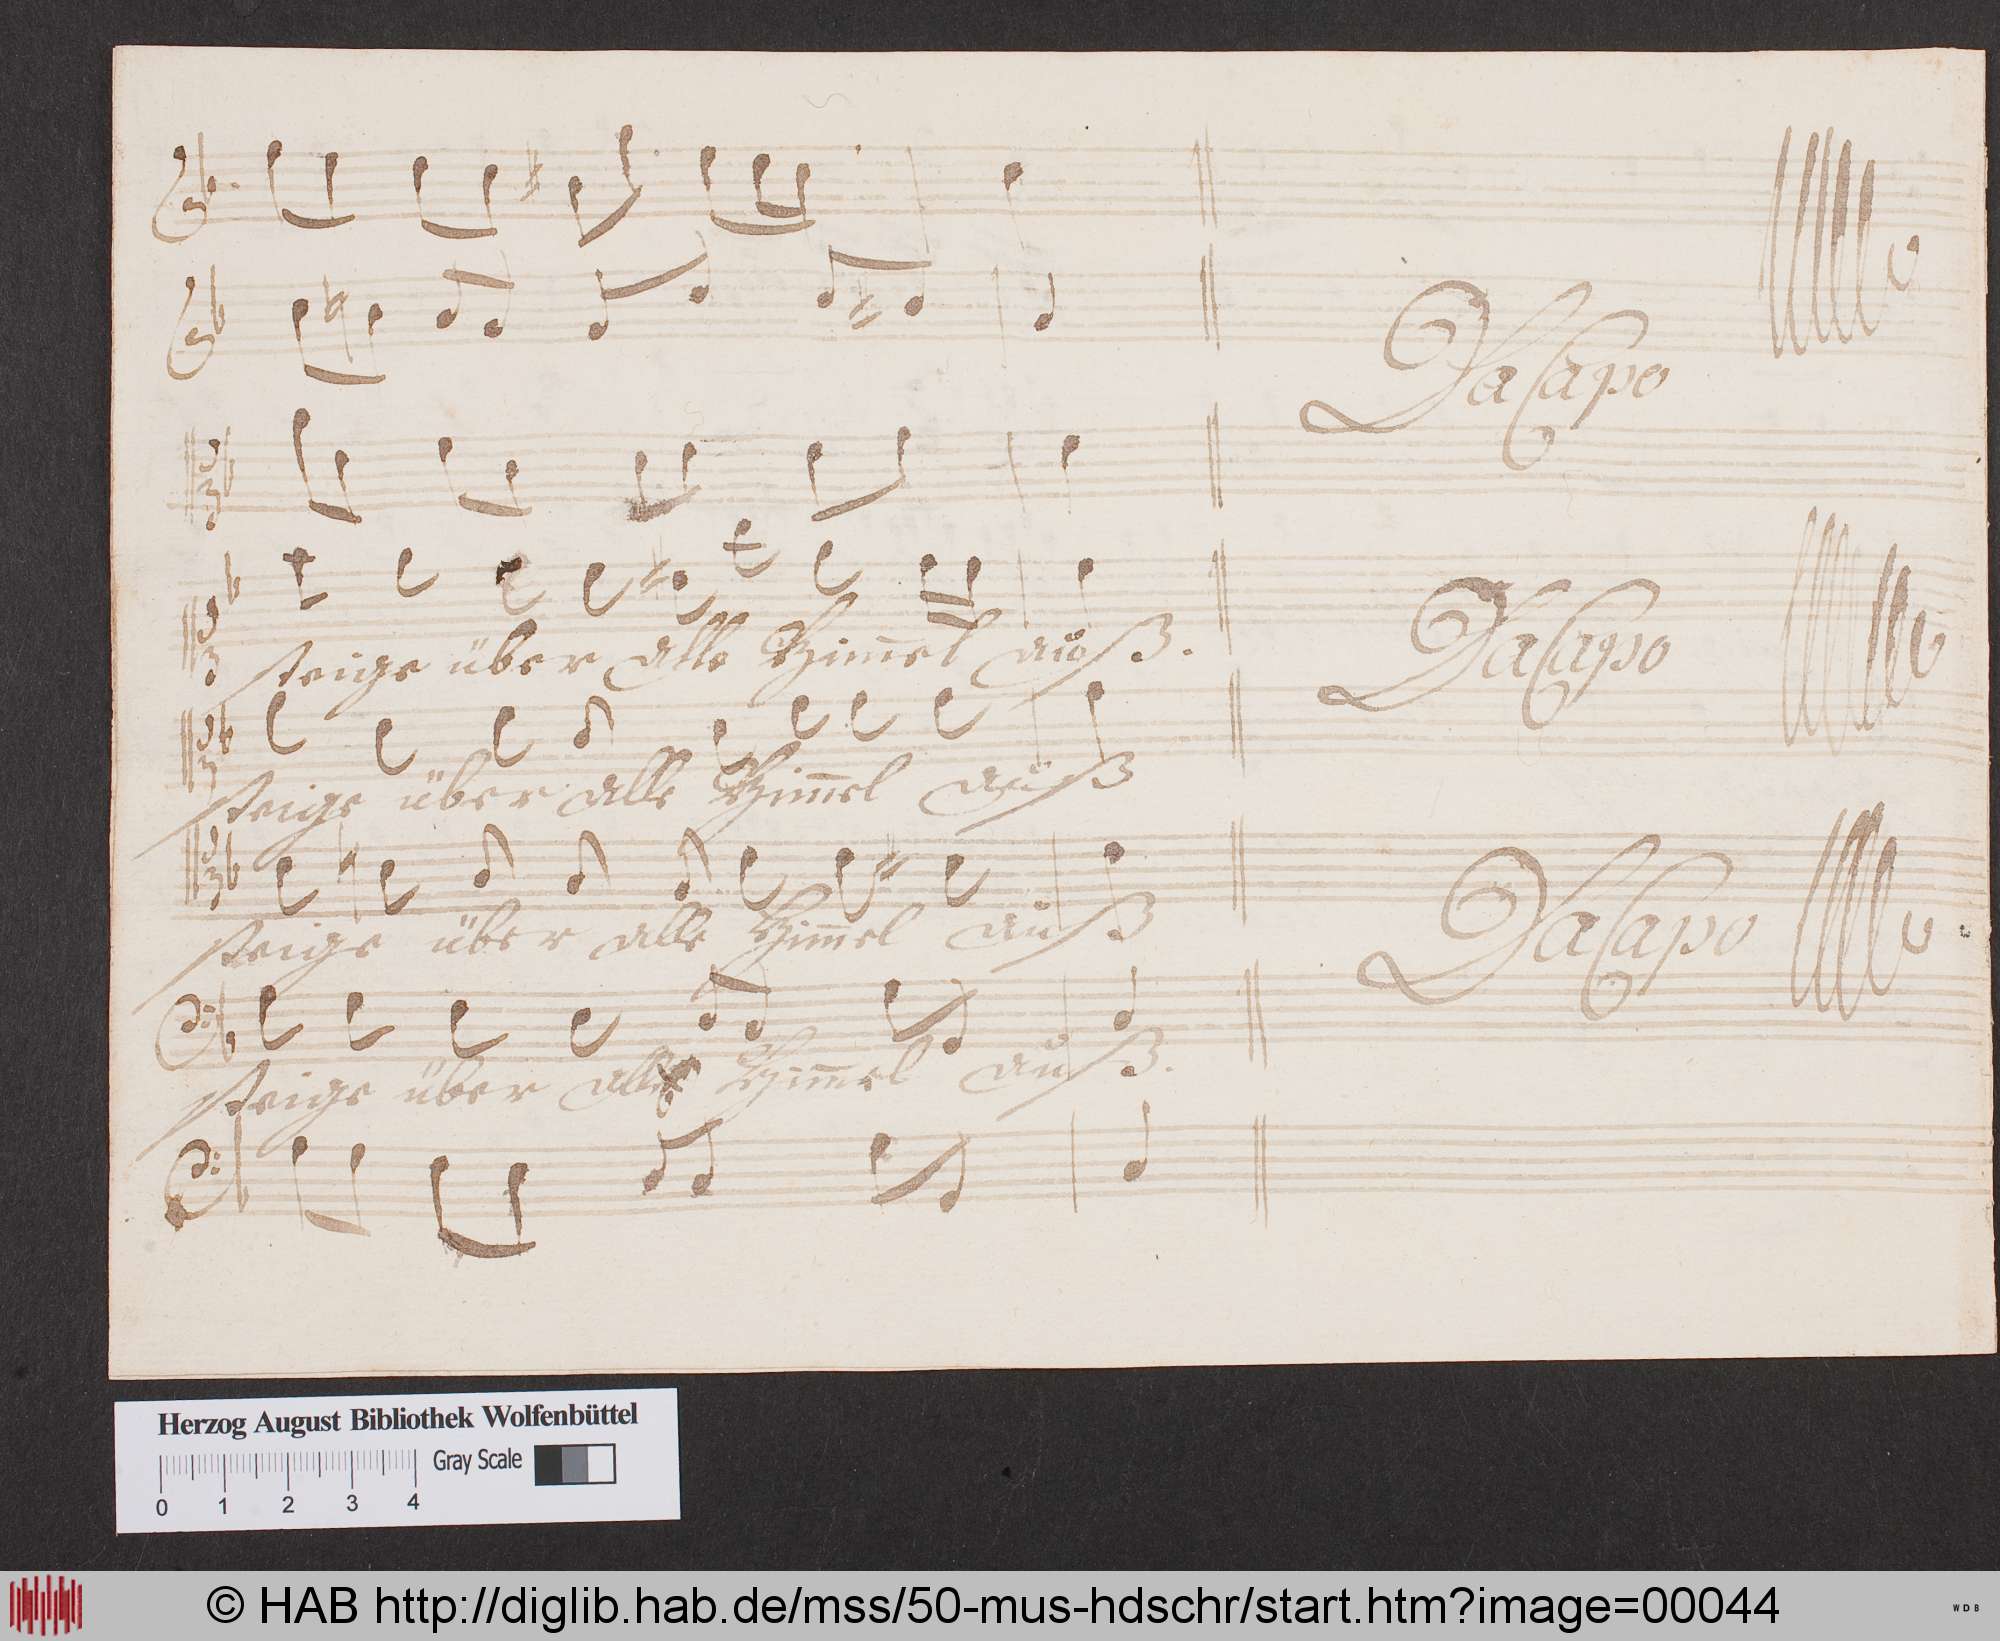 Da Capo
steige über alle Him̄el auß.
Da Capo
steige über alle Him̄el auß
steige über alle Him̄el auß
Da Capo
steige über alle Him̄el auß.
Herzog August Bibliothek Wolfenbüttel
Gray Scale
0 1 2 3 4
© HAB http://diglib.hab.de/mss/50-mus-hdschr/start.htm?image=00044
WDB